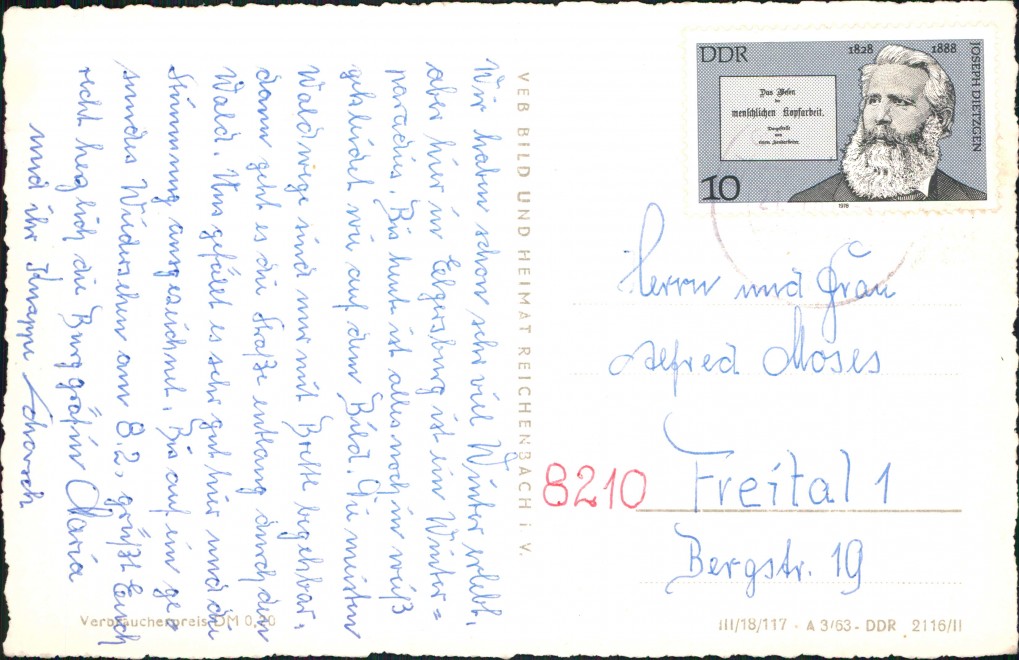 Wir haben schon sehr viel Winter erlebt,
aber hier in Elgersburg ist ein Winter=
paradies. Bis heute ist alles noch in weiß
gekleidet wie auf dem Bild. Die meisten
Waldwege sind nur mit Brette begehbar,
dann geht es die Straße entlang durch den
Wald. Uns gefällt es sehr gut hier und die
Stimmung ausgezeichnet. Bis auf ein ge=
sundes Wiedersehen am 8.2, grüßt Euch
recht herzlich die Burggräfin Maria
und ihr Knappe
VEB BILD UND HEIMAT REICHENBACH i. V.
Verbraucherpreis DM 0,20
DDR
1828 1888
JOSEPH DIETZGEN
Das Wesen
der
menschlichen Kopfarbeit.
Dargestellt
von
einem Handarbeiter.
10
1978
Herrn und Frau
Alfred Moses
8210 Freital 1
Bergstr. 19
III/18/117 - A 3/63 - DDR 2116/II